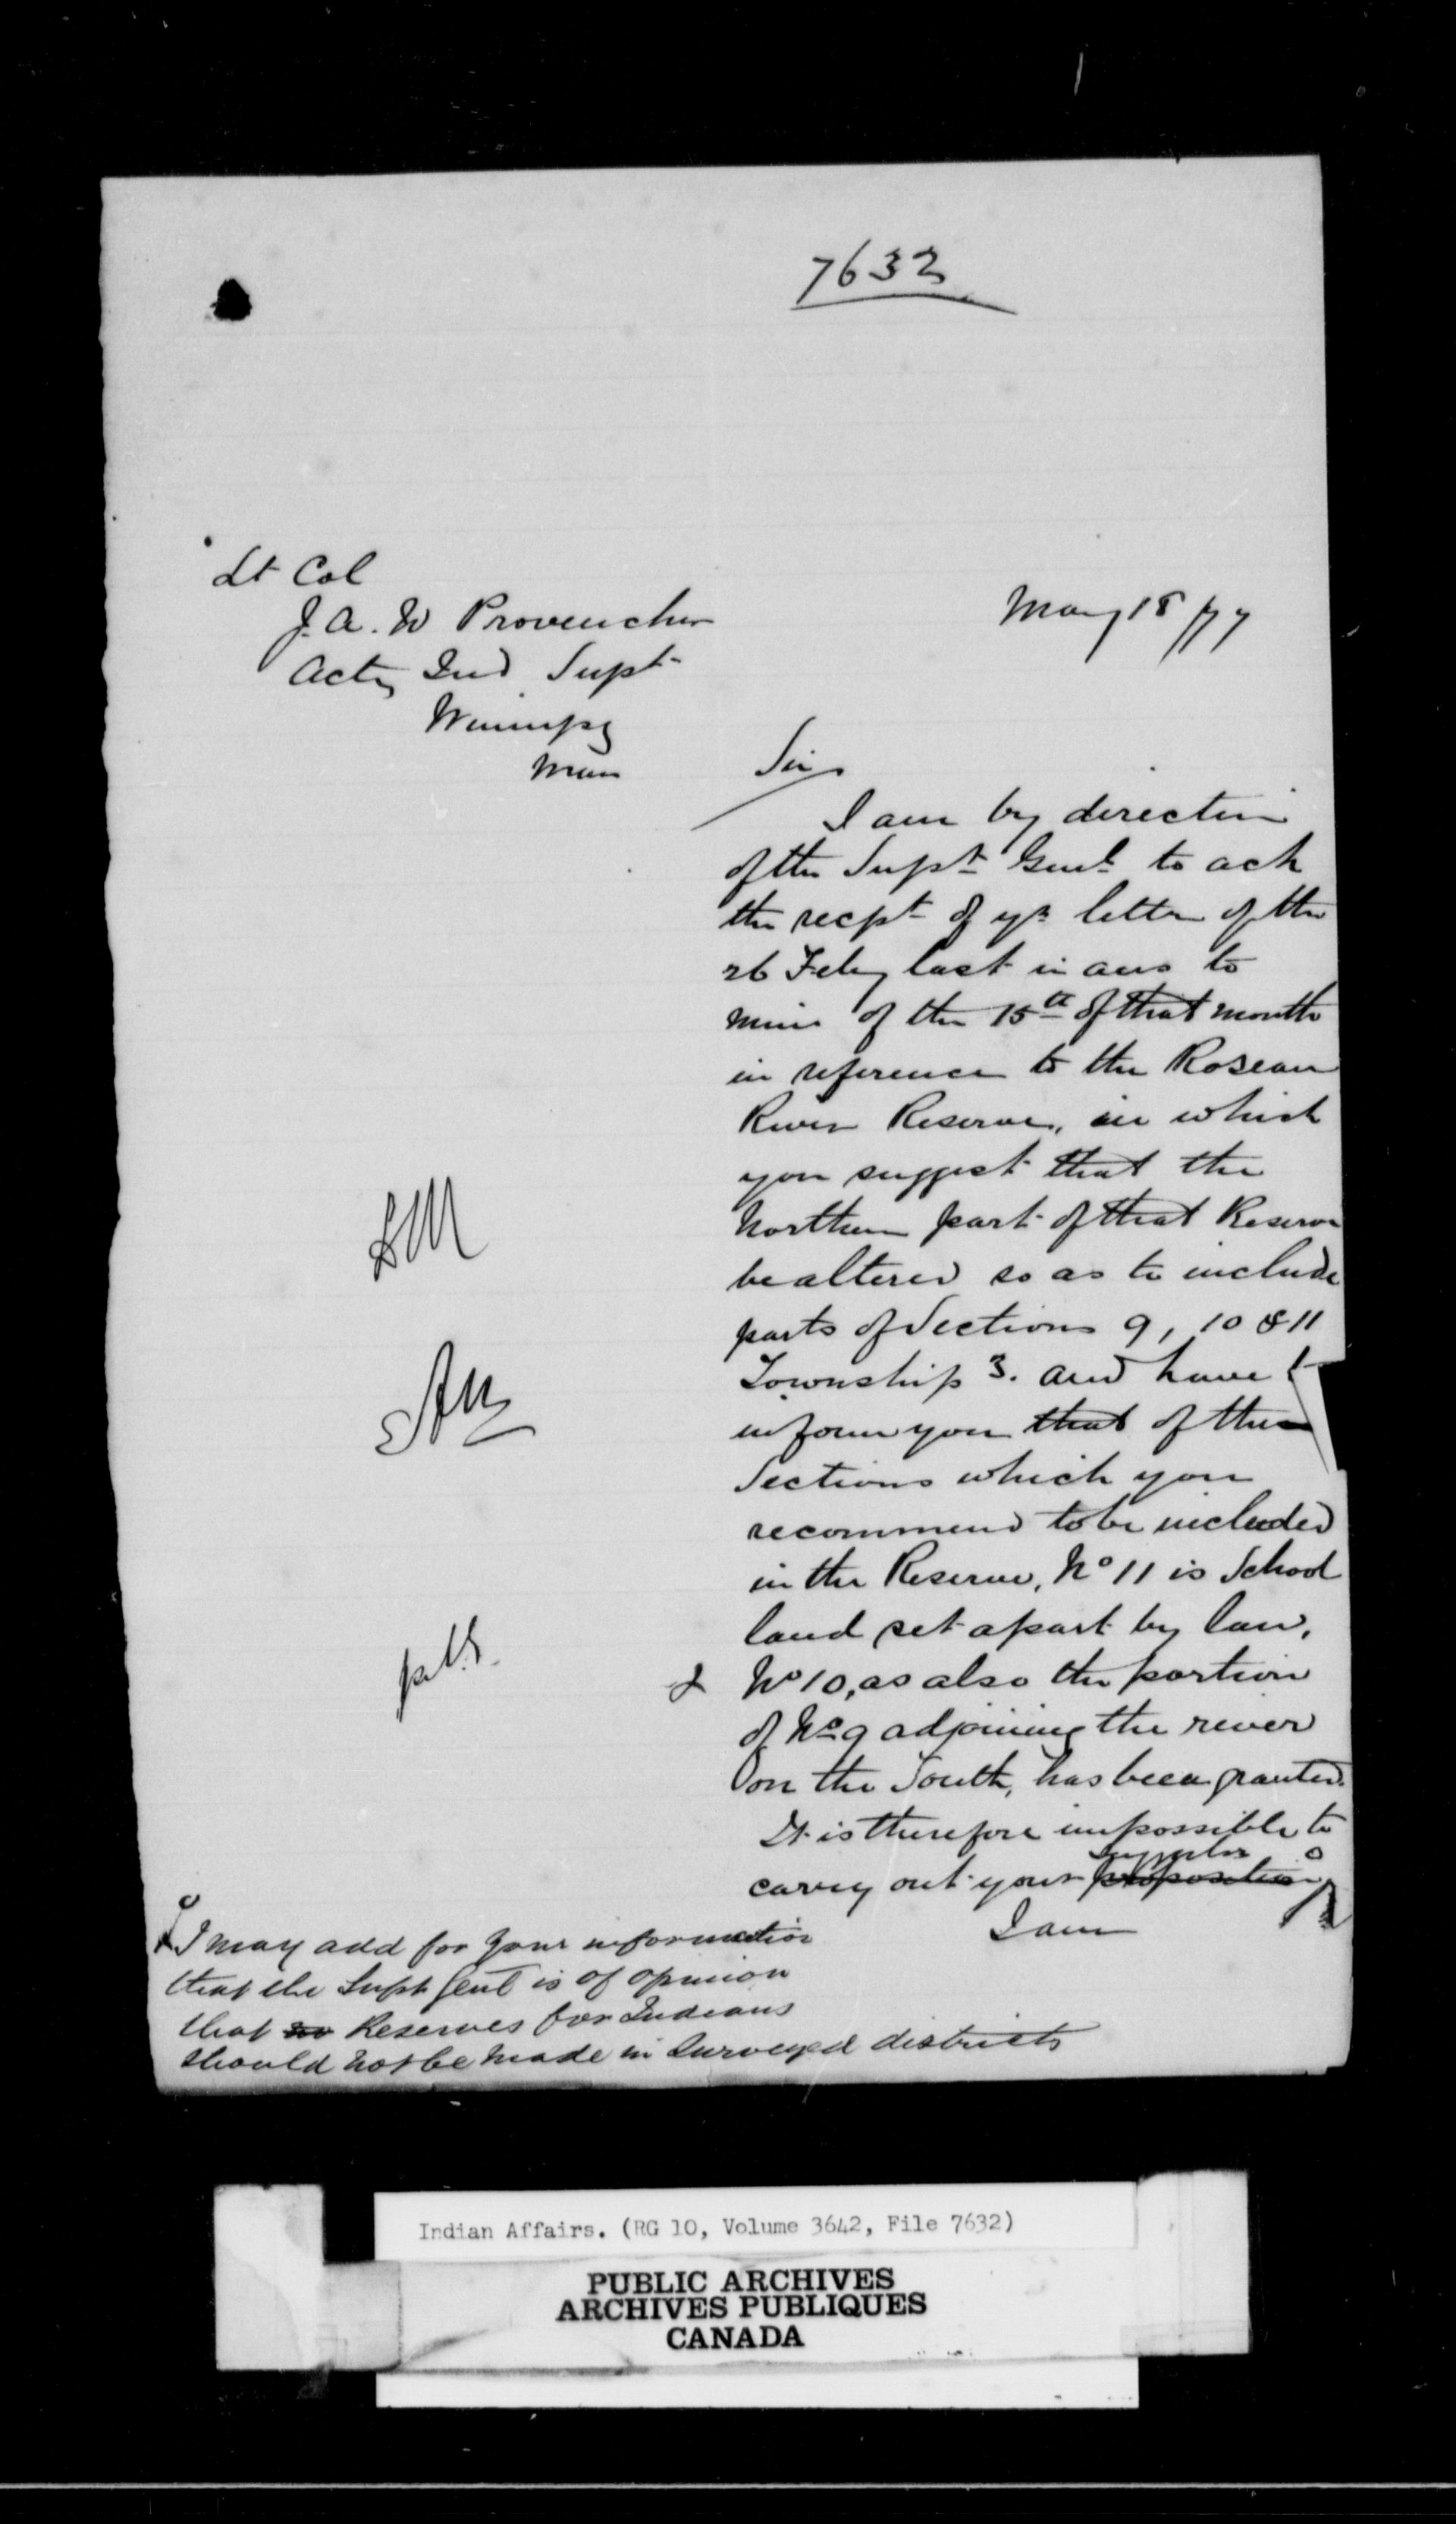 7632
Lt Col
J. A. W Provencher
Actg Ind Supt
Winnipg
Man
May 18/77
Sir
I am by direction
of the Supt Genl to ack
the recpt of yr letter of the
26 Feby last in ans to
mine of the 15th of that month
in reference to the Roseau
River Reserve, in which
you suggest that the
Northern part of that Reserve
be altered so as to include
parts of Sections 9, 10 & 11
Township 3. and have t
inform you that of the
Sections which you
recommend to be included
in the Reserve, No 11 is School
land set apart by law,
& No 10, as also the portion
of No 9 adjoining the river
on the South, has been granted.
It is therefore impossible to
carry out your proposition
I am
I may add for your information
that the Supt Genl is of opinion
that no Reserves for Indians
should not be made in Surveyed districts
Indian Affairs. (RG 10, Volume 3642, File 7632)
PUBLIC ARCHIVES
ARCHIVES PUBLIQUES
CANADA